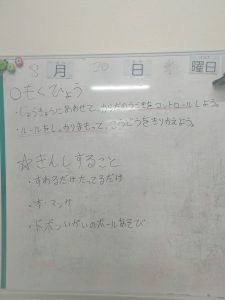 8 月 30 日 曜日
○もくひょう
・じょうきょうにあわせて、からだのうごきをコントロールしよう。
・ルールをしっかりまもって、こうどうをきりかえよう。
☆きんしすること
・すわるだけたってるだけ
・オ・マンサ
・ドボンいがいのボールあそび